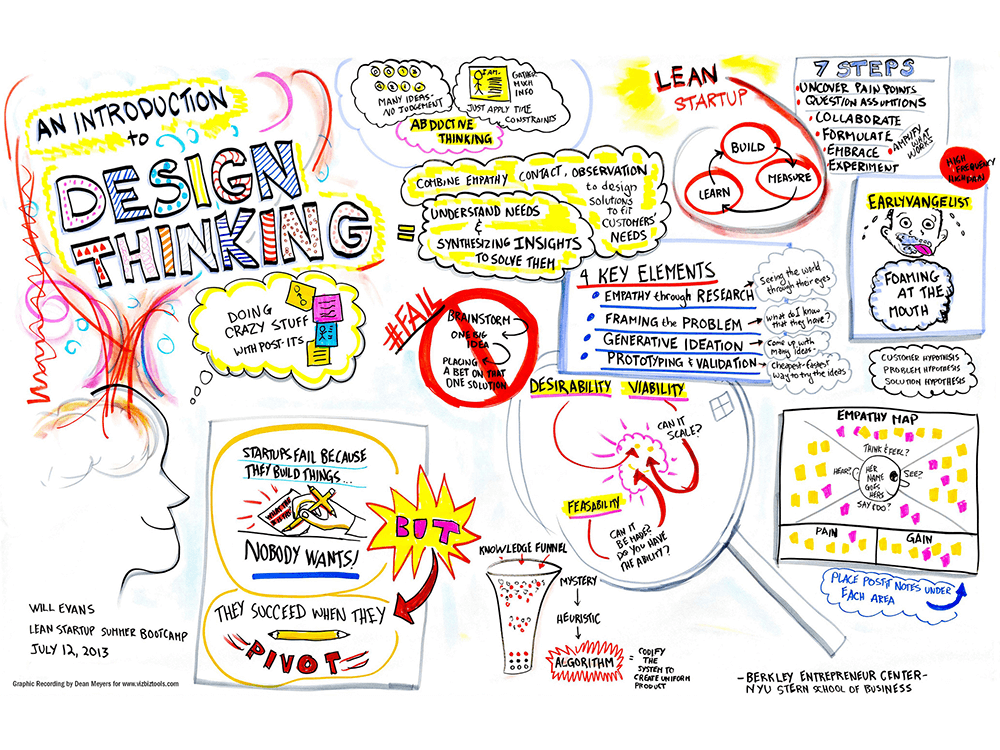 AN INTRODUCTION
to
DESIGN
THINKING
=
COMBINE EMPATHY CONTACT, OBSERVATION
to design
solutions
to fit
CUSTOMERS'
NEEDS
UNDERSTAND NEEDS
&
SYNTHESIZING INSIGHTS
TO SOLVE THEM
MANY IDEAS-
NO JUDGEMENT
I AM.
GATHER
MUCH
INFO
JUST APPLY TIME
CONSTRAINTS
ABDUCTIVE
THINKING
LEAN
STARTUP
BUILD
MEASURE
LEARN
7 STEPS
UNCOVER PAIN POINTS
QUESTION ASSUMPTIONS
COLLABORATE
FORMULATE
EMBRACE
EXPERIMENT
AMPLIFY
WHAT
WORKS
HIGH
FREQUENCY
HIGH PAIN
EARLYVANGELIST
FOAMING
AT THE
MOUTH
DOING
CRAZY STUFF
WITH POST-ITS
#FAIL
BRAINSTORM
ONE BIG
IDEA
PLACING
A BET ON THAT
ONE SOLUTION
4 KEY ELEMENTS
EMPATHY through RESEARCH
FRAMING the PROBLEM
GENERATIVE IDEATION
PROTOTYPING & VALIDATION
Seeing the world
through their eyes
What do I know
that they have?
Come up with
many ideas.
Cheapest-fastest
way to try the ideas
CUSTOMER HYPOTHESIS
PROBLEM HYPOTHESIS
SOLUTION HYPOTHESIS
DESIRABILITY VIABILITY
CAN IT
SCALE?
FEASABILITY
CAN IT
BE MADE?
DO YOU HAVE
THE ABILITY?
EMPATHY MAP
THINK & FEEL?
HEAR?
HER
NAME
GOES
HERE
SEE?
SAY/DO?
PAIN
GAIN
PLACE POSTIT NOTES UNDER
EACH AREA
STARTUPS FAIL BECAUSE
THEY BUILD THINGS...
NOBODY WANTS!
BUT
THEY SUCCEED WHEN THEY
PIVOT
KNOWLEDGE FUNNEL
MYSTERY
HEURISTIC
ALGORITHM
= CODIFY
THE
SYSTEM TO
CREATE UNIFORM
PRODUCT
WILL EVANS
LEAN STARTUP SUMMER BOOTCAMP
JULY 12, 2013
Graphic Recording by Dean Meyers for www.vizbiztools.com
-BERKLEY ENTREPRENEUR CENTER-
NYU STERN SCHOOL OF BUSINESS